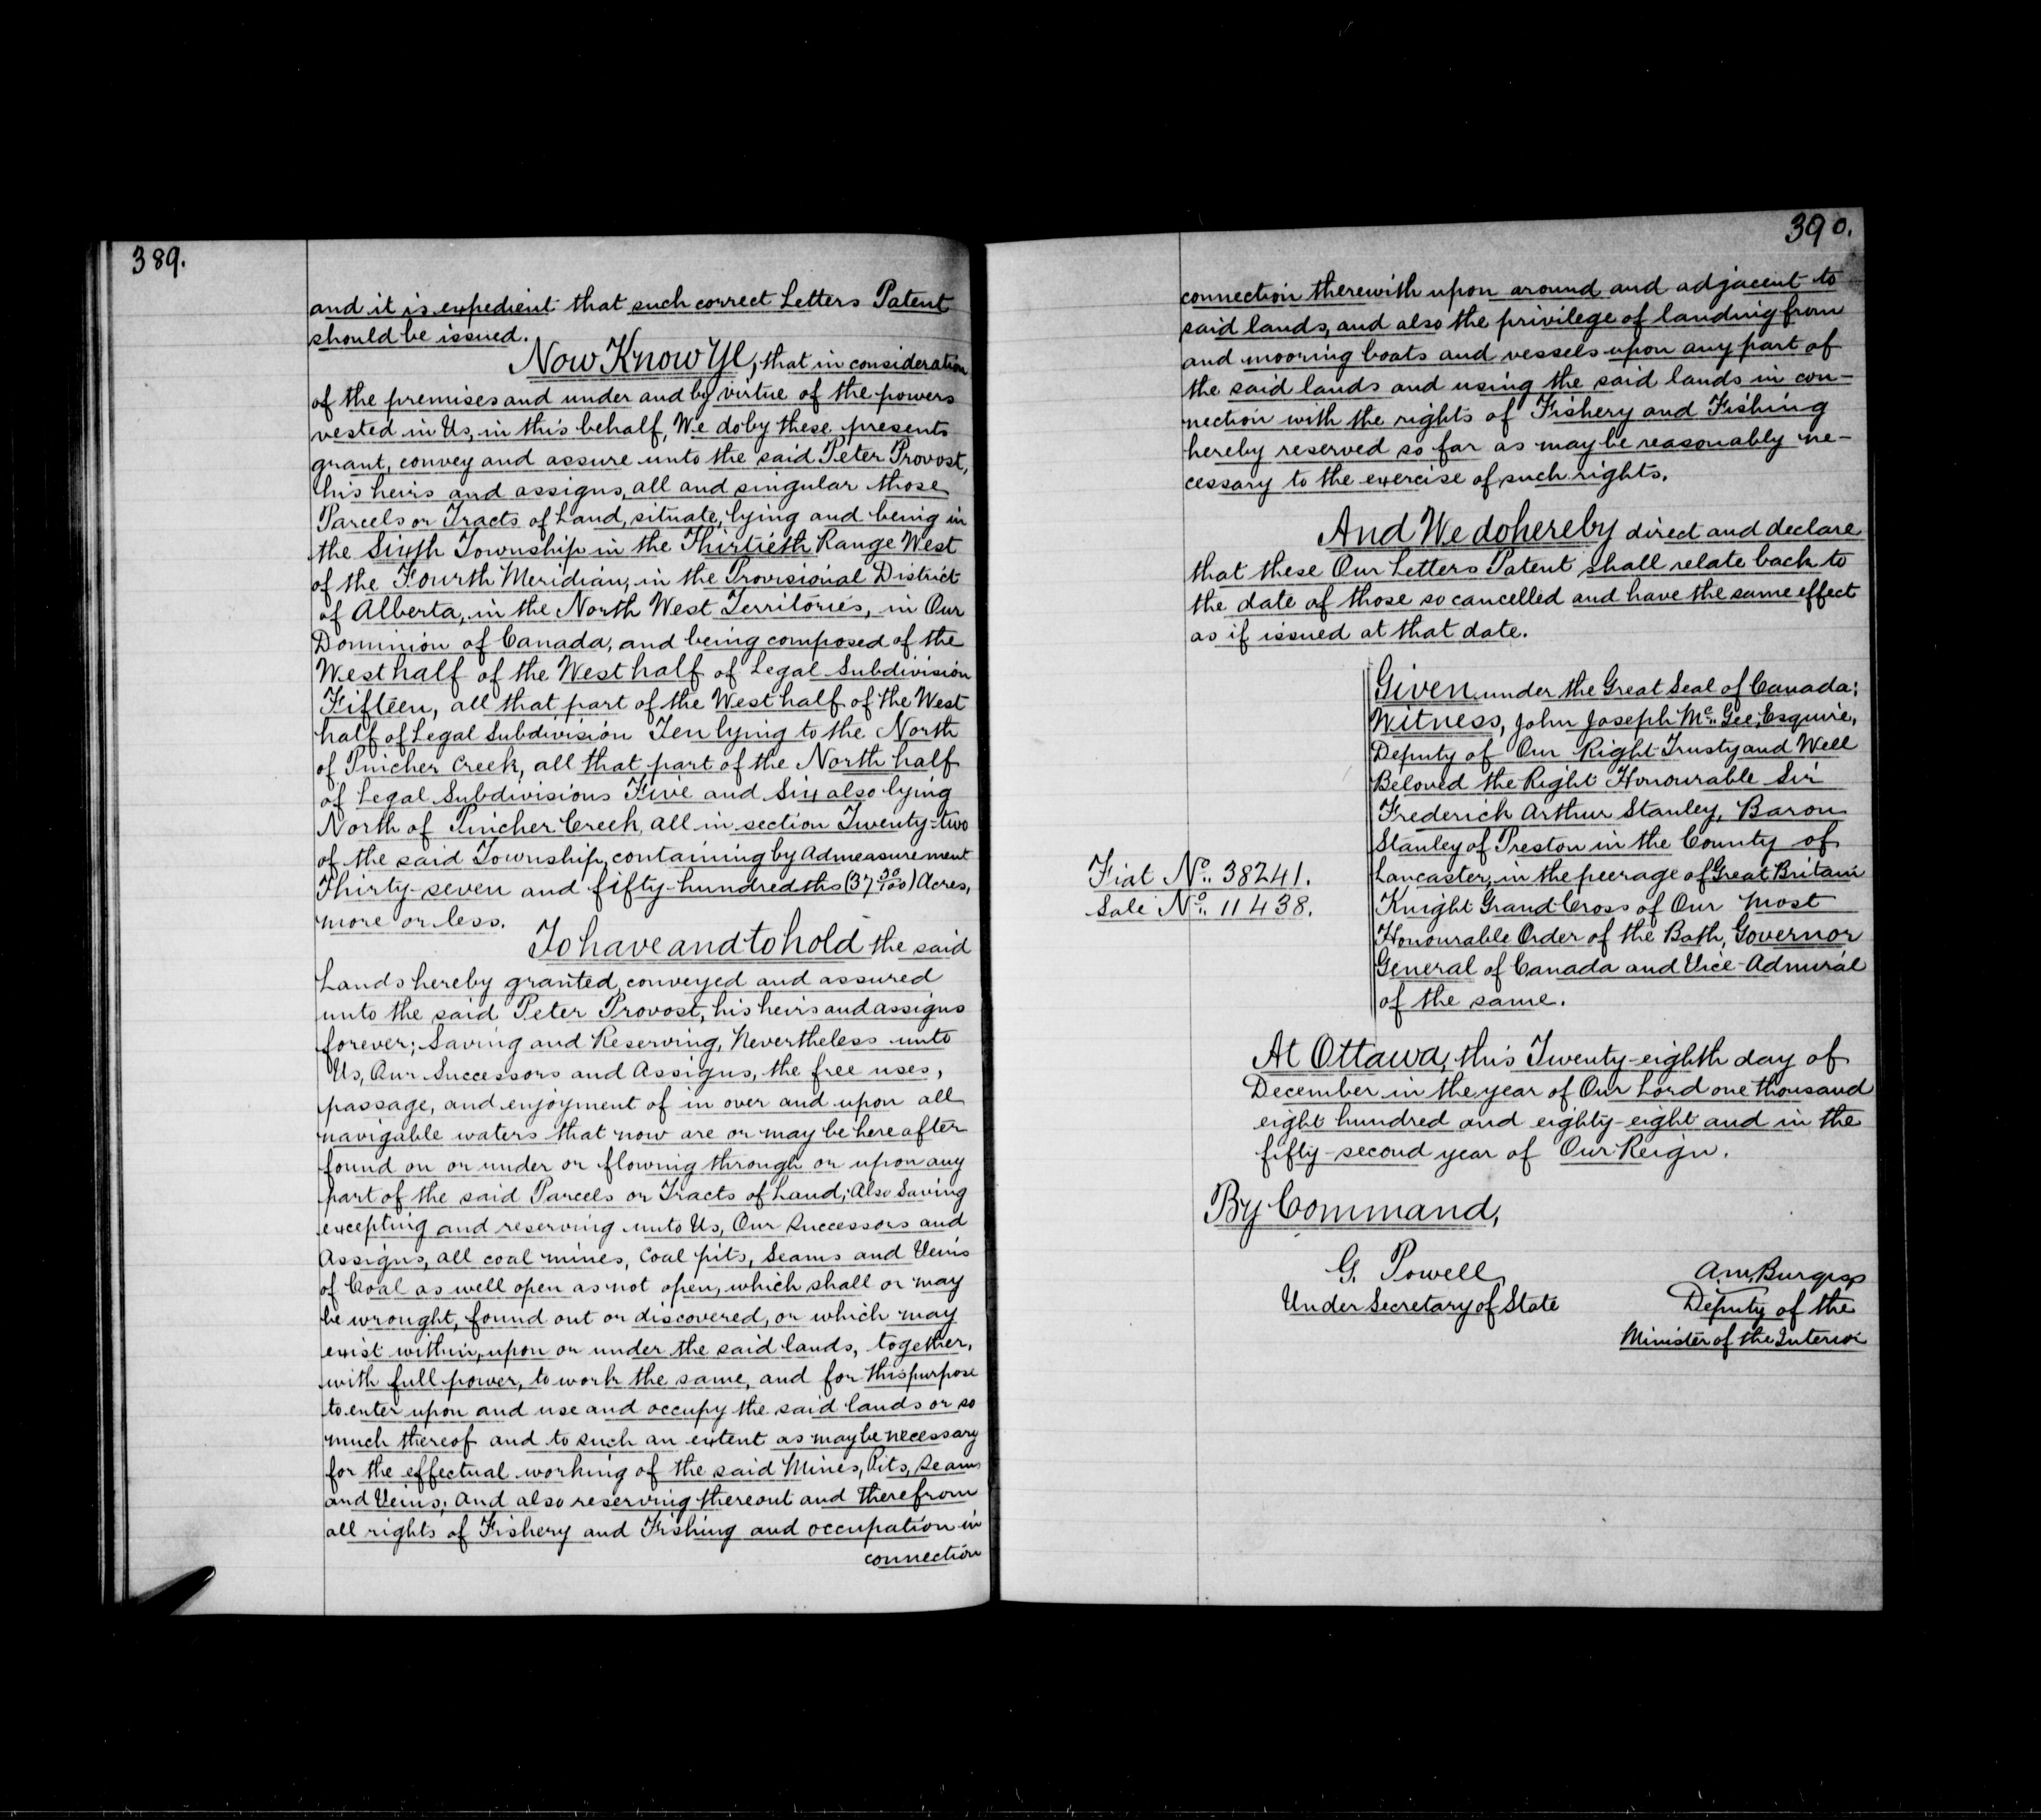 389.
and it is expedient that such correct Letters Patent
should be issued.
Now Know Ye, that in consideration
of the premises and under and by virtue of the powers
vested in Us, in this behalf, We do by these presents
grant, convey and assure unto the said Peter Provost,
his heirs and assigns, all and singular those
Parcels or Tracts of Land, situate, lying and being in
the Sixth Township in the Thirtieth Range West
of the Fourth Meridian, in the Provisional District
of Alberta, in the North West Territories, in Our
Dominion of Canada, and being composed of the
West half of the West half of Legal Subdivision
Fifteen, all that part of the West half of the West
half of Legal Subdivision Ten lying to the North
of Pincher Creek, all that part of the North half
of Legal Subdivisions Five and Six also lying
North of Pincher Creek, all in section Twenty-two
of the said Township, containing by admeasurement
Thirty-seven and fifty-hundredths (37 50/100) Acres,
more or less.
To have and to hold the said
Lands hereby granted, conveyed and assured
unto the said Peter Provost, his heirs and assigns
forever; Saving and Reserving, Nevertheless unto
Us, Our Successors and Assigns, the free uses,
passage, and enjoyment of in over and upon all
navigable waters that now are or may be hereafter
found on or under or flowing through or upon any
part of the said Parcels or Tracts of Land; Also Saving
excepting and reserving unto Us, Our Successors and
Assigns, all coal mines, Coal pits, Seams and Veins
of Coal as well open as not open, which shall or may
be wrought, found out or discovered, or which may
exist within, upon or under the said lands, together,
with full power, to work the same, and for this purpose
to enter upon and use and occupy the said lands or so
much thereof and to such an extent as may be necessary
for the effectual working of the said Mines, Pits, Seams
and Veins; And also reserving thereout and therefrom
all rights of Fishery and Fishing and occupation in
connection
390.
connection therewith upon around and adjacent to
said lands, and also the privilege of landing from
and mooring boats and vessels upon any part of
the said lands and using the said lands in con-
nection with the rights of Fishery and Fishing
hereby reserved so far as may be reasonably ne-
cessary to the exercise of such rights.
And We do hereby direct and declare
that these Our Letters Patent shall relate back to
the date of those so cancelled and have the same effect
as if issued at that date.
Given under the Great Seal of Canada:
Witness, John Joseph McGee, Esquire,
Deputy of Our Right Trusty and Well
Beloved the Right Honourable Sir
Frederick Arthur Stanley, Baron
Stanley of Preston in the County of
Lancaster, in the peerage of Great Britain
Knight Grand Cross of Our Most
Honourable Order of the Bath, Governor
General of Canada and Vice-Admiral
of the same.
Fiat No. 38241.
Sale No. 11438.
At Ottawa, this Twenty-eighth day of
December in the year of Our Lord one thousand
eight hundred and eighty-eight and in the
fifty-second year of Our Reign.
By Command,
G. Powell
Under Secretary of State
A.M. Burgess
Deputy of the
Minister of the Interior